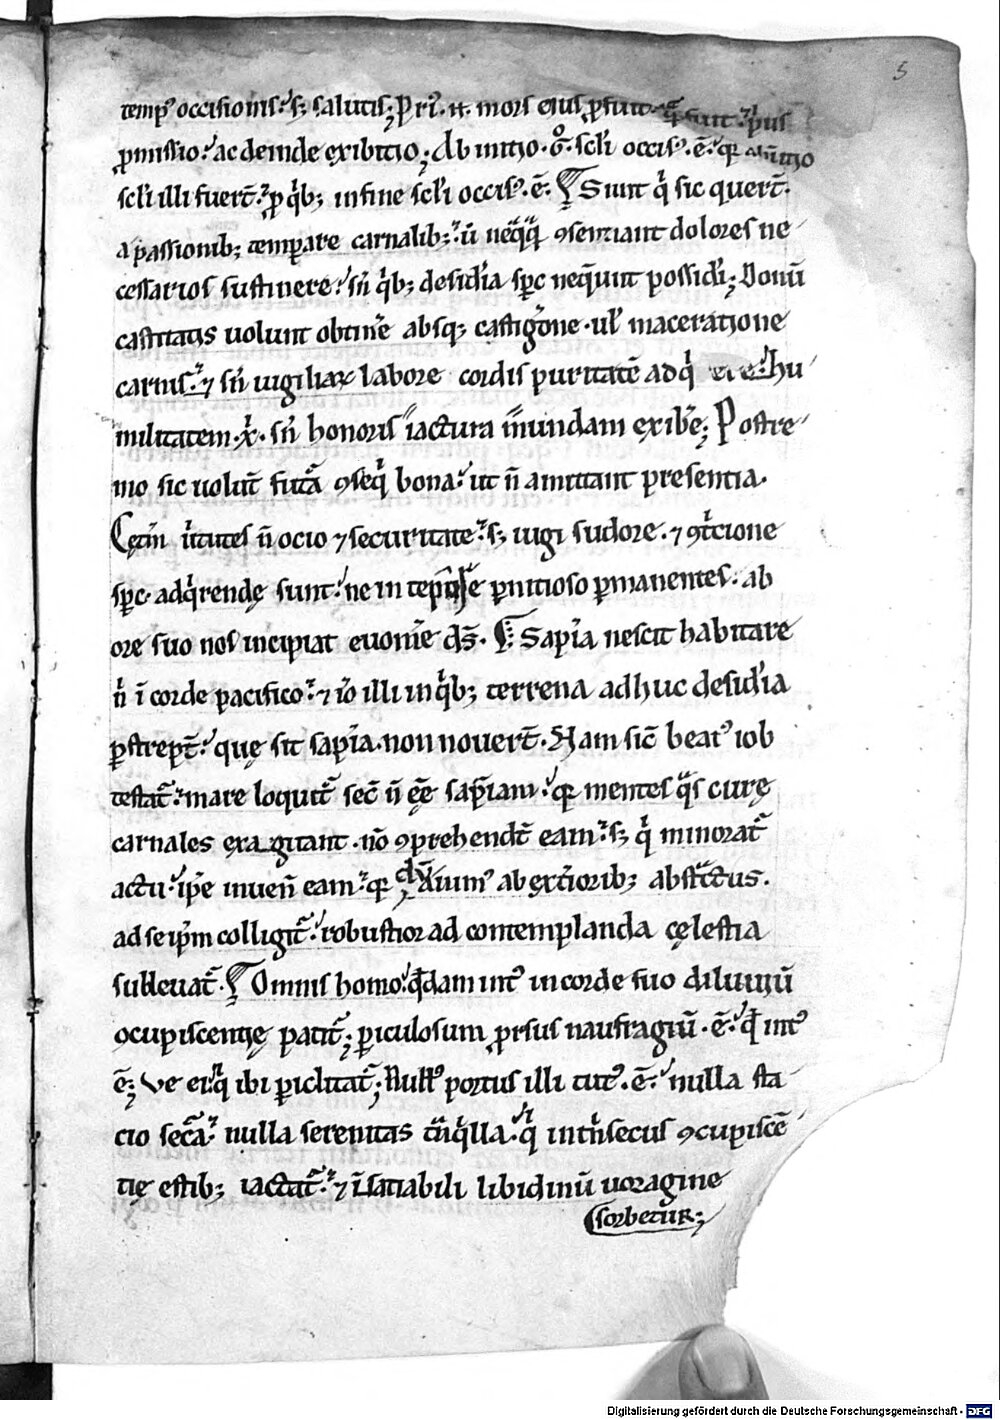 5
temp᷒ occisionis. s; salutis; Pri᷒. n. mors eius ꝓfuit sunt p̄us
ꝓmissio. ac deinde exibitio; Ab initio. g̊. sc̄li occis᷒. ē. qꝛ ab initio
sc̄li illi fuerт̄. ꝓ qͥb; in fine sc̄li occis᷒. ē. ¶ Sunt qͥ sic querт̄.
a passionib; temꝑare carnalib; ū neq̄q̄ ꝯsentiant dolores ne
cessarios sustinere. sn̄ qͥb; desid̓ia sp̄c neq̄unt possidi; Bonū
castitatis uolunt obtin̓e absq; castigōne. ul̄ maceratione
carnis. ⁊ sn̄ uigiliaꝝ labore cordis puritatē adqͥ hu
militatem. x̄. sn̄ honoris iactura mundam exib̓e; Postre
mo sic uolūt fut̄a ꝯseqͥ bona. ut n̄ amittant presentia.
Cęt̄m ūtutes n̄ ocio ⁊ securitate. s; iugi sudore. ⁊ ꝯtͥcione
sp̄c. adqͥrendę sunt. ne in ꝑnitioso ꝑmanentes. ab
ore suo nos incipiat euom̓e ds̄. ¶ Sapīa nescit habitare
n̄ ī corde pacifico. ⁊ iō illi in qͥb; terrena adhuc desid̓ia
ꝑstrepт̄. quę sit sapīa. non nouerт̄. Nam sic̄ beat᷒ iob
testat̄. mare loquit̄ sec̄ n̄ ēe sapīam. qꝛ mentes qͣs curę
carnales exagitant. nō ꝯprehendт̄ eam. s; qͥ minorat̄
actu. ip̄e inuen̄ eam. qꝛ ab ext̓iorib; abstͣctus.
ad seip̄m colligit̄. robustior ad contemplanda cęlestia
subleuat̄. ¶ Omnis homo. q̄dam int᷒ in corde suo diluuiū
ꝯcupiscentię patit̄; ꝑiculosum ꝓrsus naufragiū. ē. qđ int᷒
ē; Ve ei qͥ ibi ꝑiclitat̄; Null᷒ portus illi tut᷒. ē. nulla sta
cio sec̄a. nulla serenitas tͣnqͥlla. qͥ intͥnsecus ꝯcupiscē
tię estib; iactat̄. ⁊ īsatiabili libidinū uoragine
sorbetur;
Digitalisierung gefördert durch die Deutsche Forschungsgemeinschaft - DFG